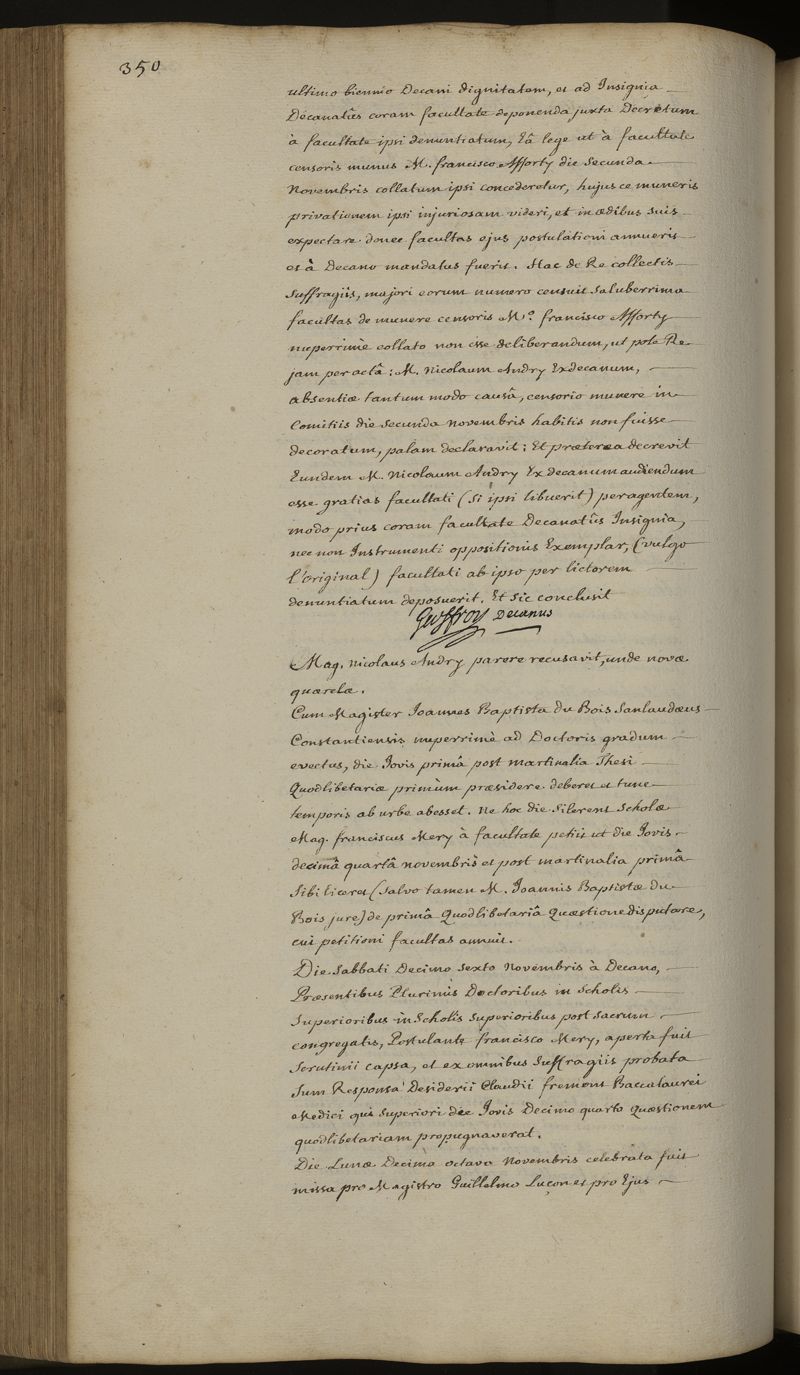 350
ultimo biennio Decani dignitatem, et ad Insignia
Decanatûs coram facultate deponenda juxta Decretum
à facultate ipsi denuntiatum, Eâ lege ut à facultate
censoris munus M. francisco Afforty die secunda
Novembris collatum ipsi concederetur, hujusce muneris
privationem ipsi injuriosam videri, et in ædibus suis
expectare donec facultas ejus postulationi annuerit
et à Decano mandatus fuerit. Hac de Re collectis
suffragiis, majori eorum numero censuit saluberrima
facultas de munere censoris M.º francisco Afforty
nuperrimè collato non esse deliberandum, ut pote Re
jam peractâ: M. Nicolaum Andry Exdecanum,
absentiæ tantum modo causâ, censorio munere in
Comitiis die secunda novembris habitis non fuisse
decoratum, palam declaravit; Et præterea decrevit
Eundem M. Nicolaum Andry Exdecanum audiendum
esse gratias facultati (si ipsi libuerit) peragentem,
modo prius coram facultate Decanatûs Insignia,
nec non Instrumenti oppositionis Exemplar, (vulgo
l'original) facultati ab ipso per lictorem
denuntiatum deposuerit. Et sic conclusit
Geoffroy Decanus
Mag. Nicolaus Andry parere recusavit, unde novæ
quærelæ.
Cum Magister Joannes Baptista du Bois Sanlaudæus
Constantiensis nuperrimè ad Doctoris gradum
evectus, die Jovis primâ post martinalia Thesi
Quodlibetariæ primùm præsidere deberet et tunc
temporis ab urbe abesset. Ne hoc die silerent Scholæ
Mag. franciscus Mery à facultate petiit ut die Jovis
decimâ quartâ novembris et post martinalia primâ
sibi liceret (salvo tamen M. Joannis Baptistæ du
Bois jure) de primâ Quodlibetariâ Quæstione disputare,
cui petitioni facultas annuit.
Die Sabbati Decimo sexto Novembris à Decano,
Præsentibus Plurimis Doctoribus in Scholis
Superioribus in Scholis superioribus post sacrum
congregatis, Postulante francisco Mery, aperta fuit
Scrutinii capsa, et ex omnibus suffragiis probata
sum Responsa Desiderii Claudii fremont Baccalaurei
Medici qui superiori die Jovis Decimo quarto Quæstionem
quodlibetariam propugnaverat.
Die Lunæ Decimo octavo Novembris celebrata fuit
missa pro Magistro Guillelmo Luçon et pro Ejus